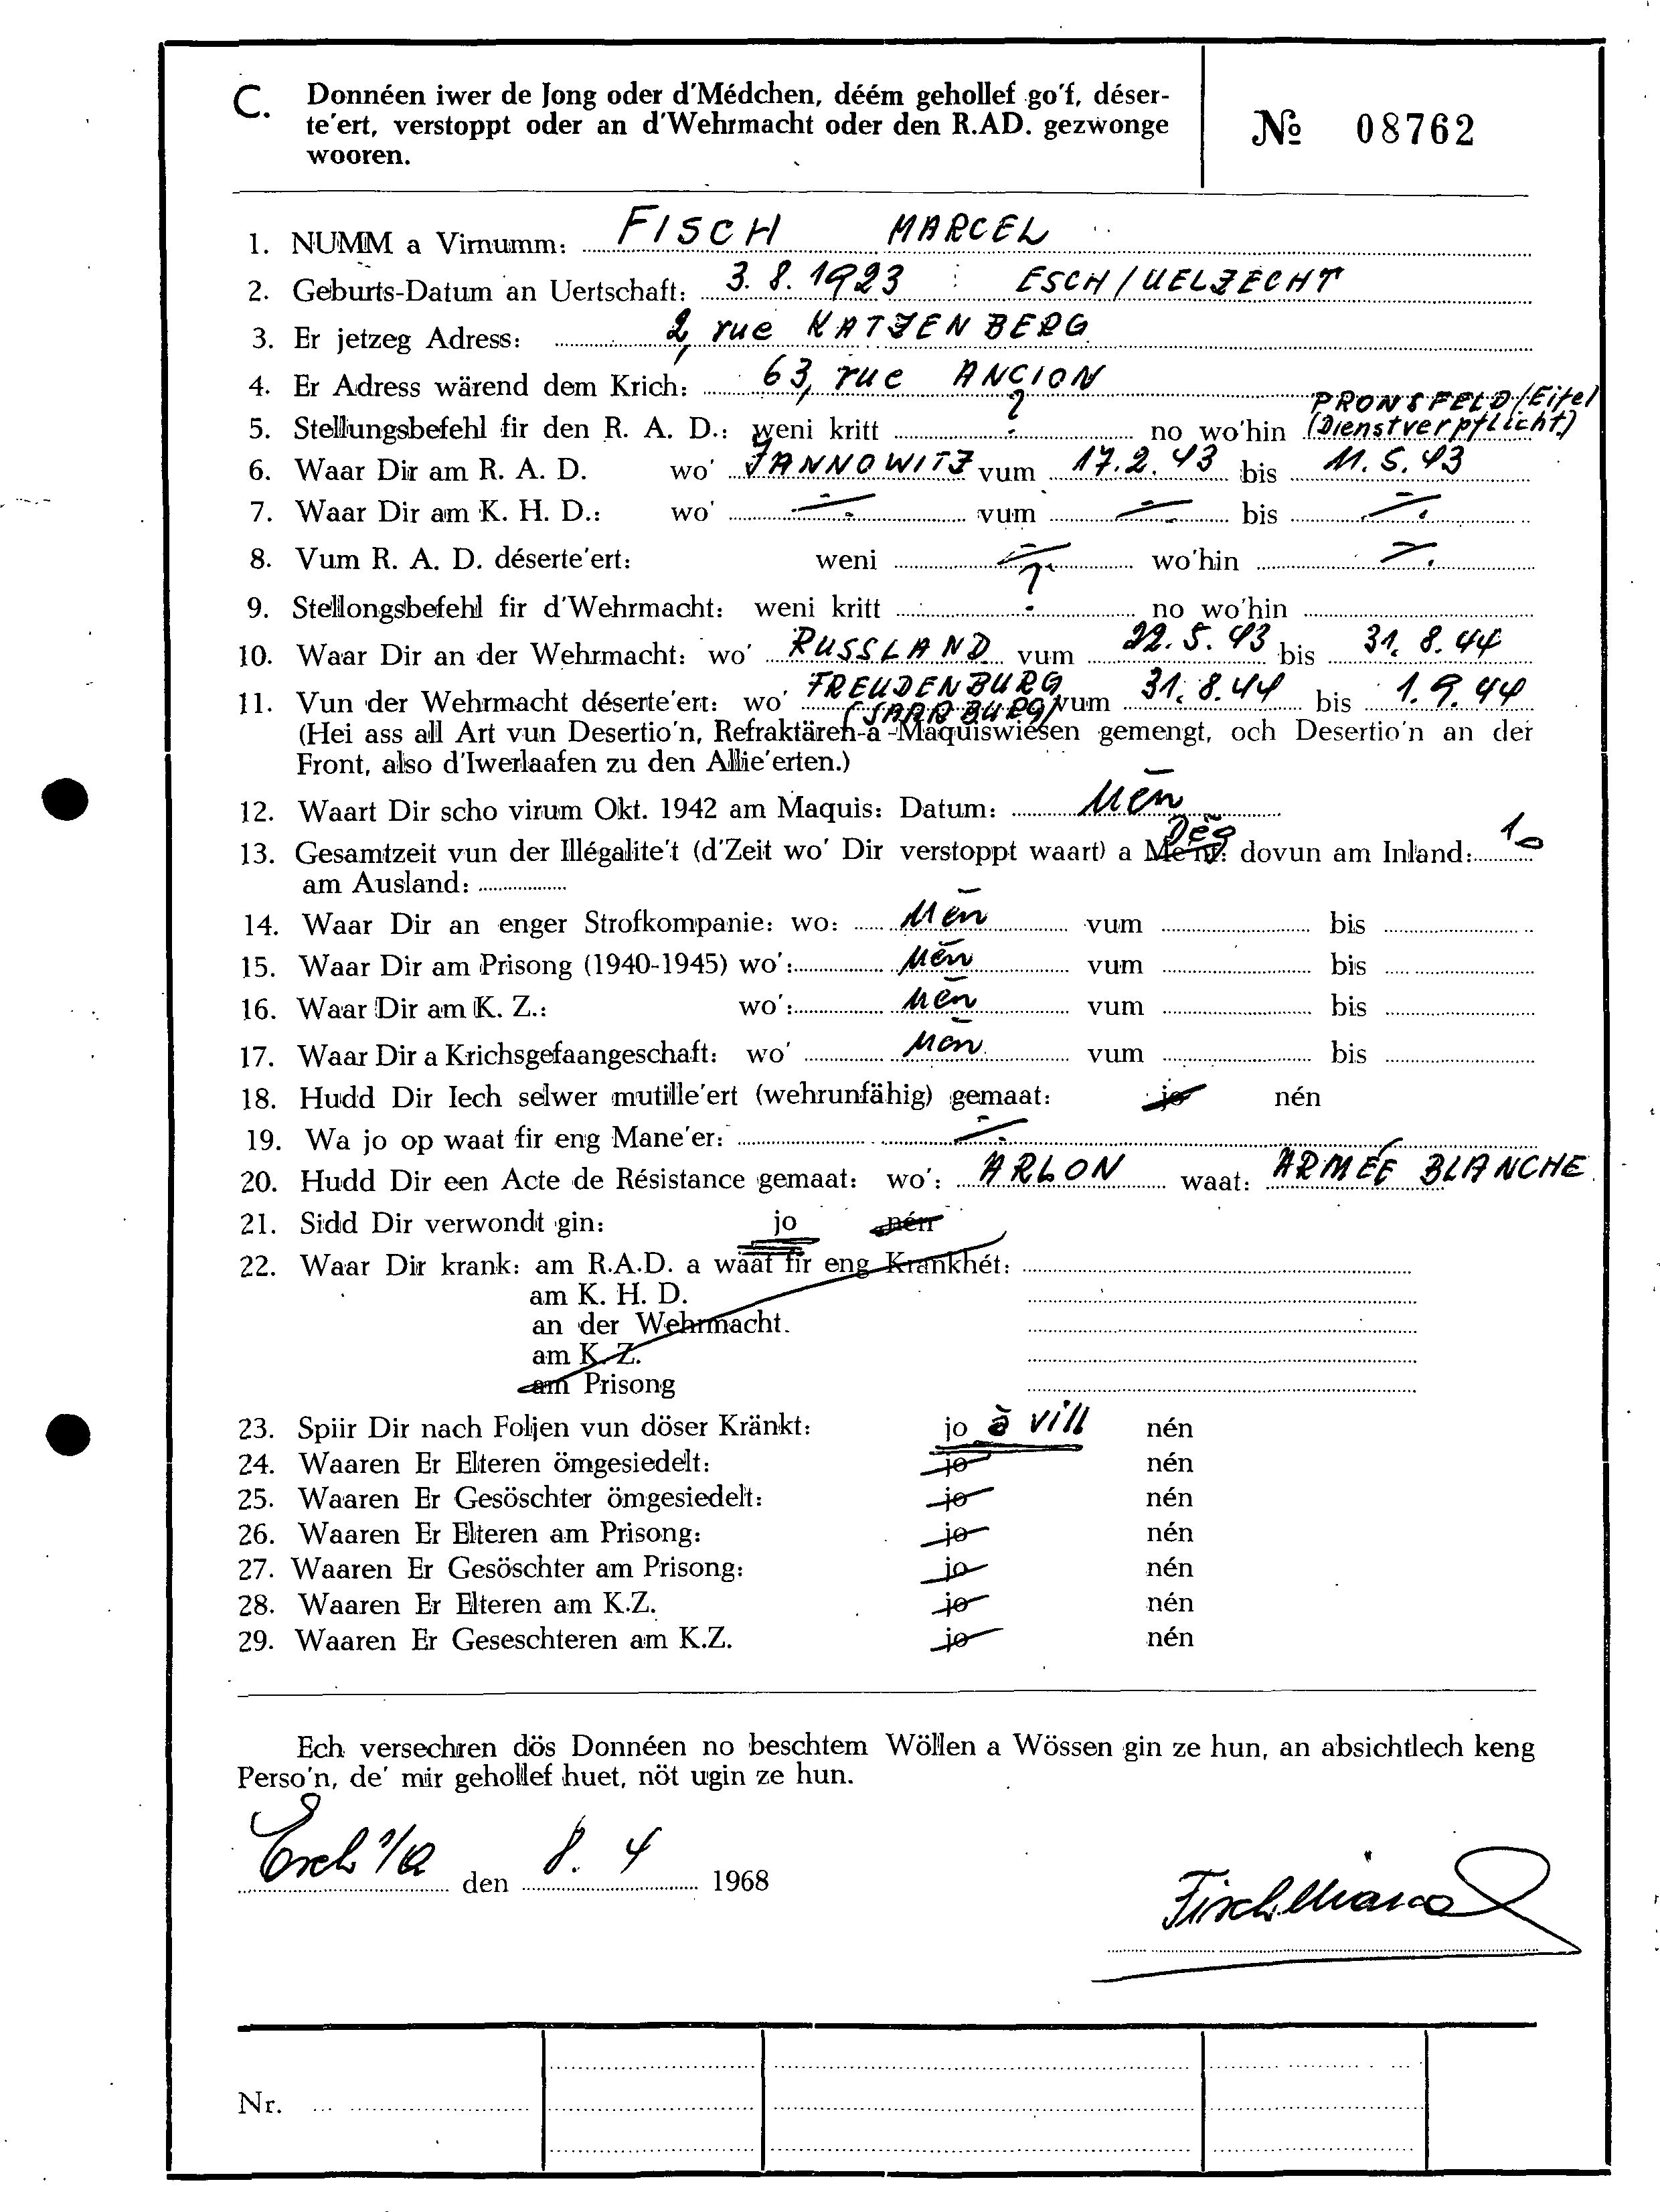 C. Donnéen iwer de Jong oder d'Médchen, déém gehollef go'f, déser-
te'ert, verstoppt oder an d'Wehrmacht oder den R.AD. gezwonge
wooren.
№ 08762
1. NUMM a Virnumm: FISCH MARCEL
2. Geburts-Datum an Uertschaft: 3. 8. 1923 ESCH/UELZECHT
3. Er jetzeg Adress: 2, rue KATZENBERG
4. Er Adress wärend dem Krich: 63, rue ANCION
PRONSFELD/Eifel
5. Stellungsbefehl fir den R. A. D.: weni kritt ? no wo'hin (Dienstverpflicht.)
6. Waar Dir am R. A. D. wo' JANNOWITZ vum 17.2.43 bis 11.5.43
7. Waar Dir am K. H. D.: wo' -/. vum -/. bis -/.
8. Vum R. A. D. déserte'ert: weni -/. wo'hin -/.
9. Stellongsbefehl fir d'Wehrmacht: weni kritt ? no wo'hin
10. Waar Dir an der Wehrmacht: wo' RUSSLAND vum 22.5.43 bis 31.8.44
11. Vun der Wehrmacht déserte'ert: wo' FREUDENBURG (SAARBURG) vum 31.8.44 bis 1.9.44
(Hei ass all Art vun Desertio'n, Refraktären-a-Maquiswiesen gemengt, och Desertio'n an der
Front, also d'Iwerlaafen zu den Allie'erten.)
12. Waart Dir scho virum Okt. 1942 am Maquis: Datum: Nēn
13. Gesamtzeit vun der Illégalite't (d'Zeit wo' Dir verstoppt waart) a Me'nt: Dēg dovun am Inland: 10
am Ausland:
14. Waar Dir an enger Strofkompanie: wo: Nēn vum bis
15. Waar Dir am Prisong (1940-1945) wo': Nēn vum bis
16. Waar Dir am K. Z.: wo': Nēn vum bis
17. Waar Dir a Krichsgefaangeschaft: wo' Nēn vum bis
18. Hudd Dir Iech selwer mutille'ert (wehrunfähig) gemaat: jo nén
19. Wa jo op waat fir eng Mane'er: -/.
20. Hudd Dir een Acte de Résistance gemaat: wo': ARLON waat: ARMÉE BLANCHE
21. Sidd Dir verwondt gin: jo nén
22. Waar Dir krank: am R.A.D. a waat fir eng Krankhét:
am K. H. D.
an der Wehrmacht.
am K. Z.
am Prisong
23. Spiir Dir nach Foljen vun döser Kränkt: jo à vill nén
24. Waaren Er Elteren ömgesiedelt: jo nén
25. Waaren Er Gesöschter ömgesiedelt: jo nén
26. Waaren Er Elteren am Prisong: jo nén
27. Waaren Er Gesöschter am Prisong: jo nén
28. Waaren Er Elteren am K.Z. jo nén
29. Waaren Er Geseschteren am K.Z. jo nén
Ech versechren dös Donnéen no beschtem Wöllen a Wössen gin ze hun, an absichtlech keng
Perso'n, de' mir gehollef huet, nöt ugin ze hun.
Esch a/A den 8. 4 1968
Fisch Marcel
Nr.